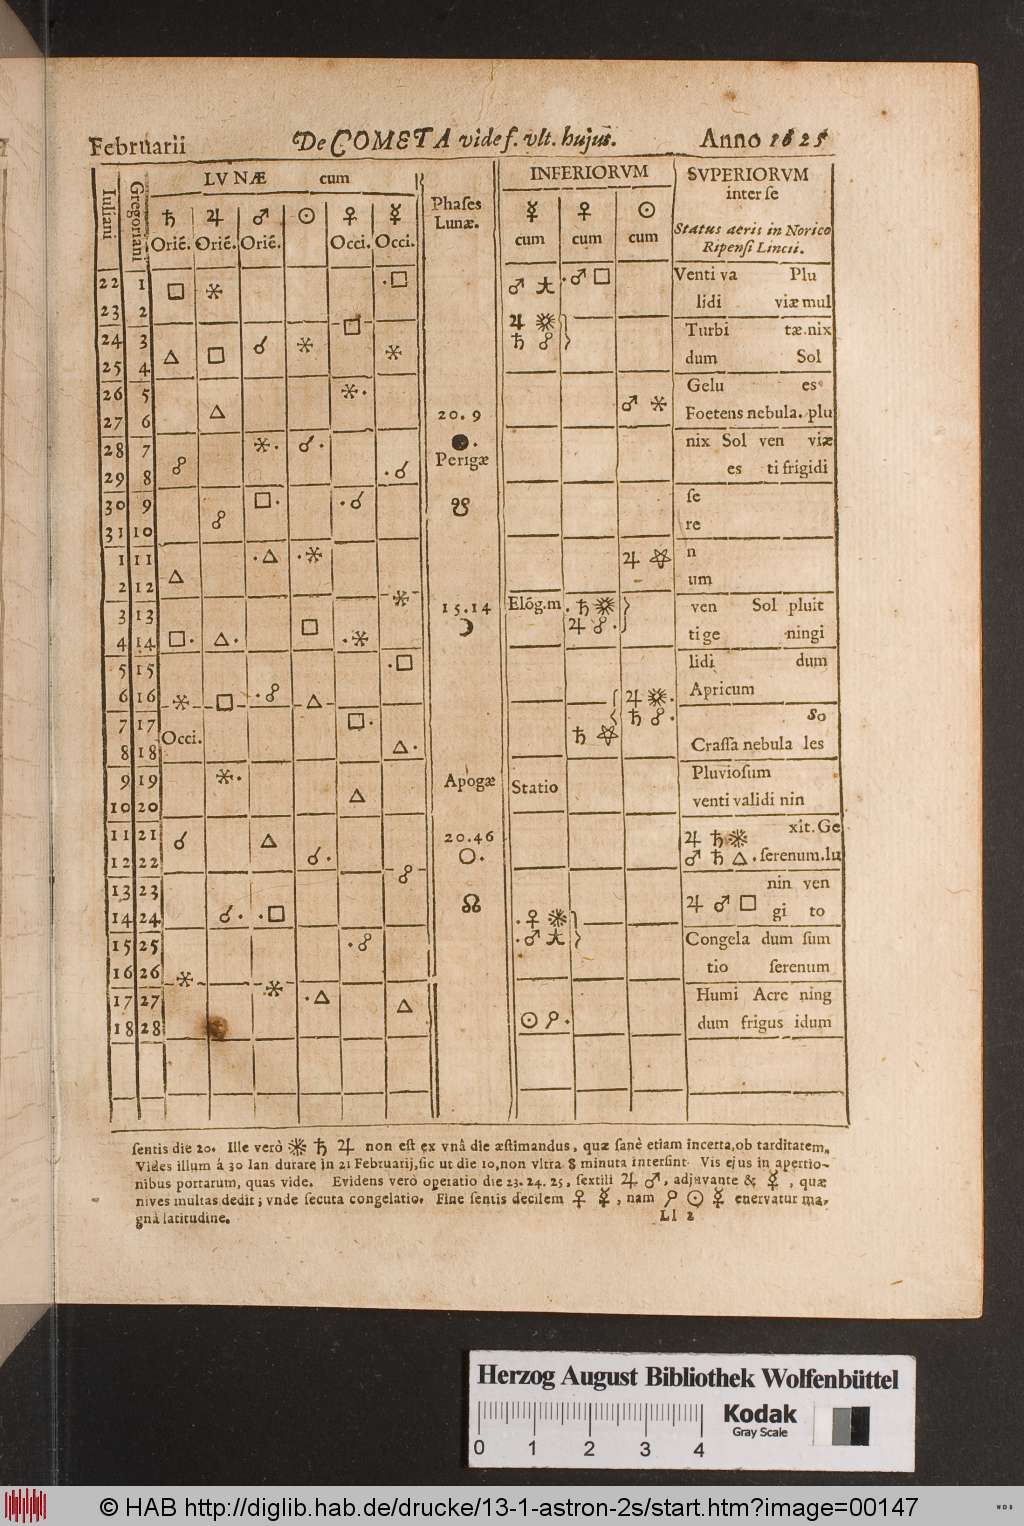 Februarii De COMETA vide f. vlt. hujus. Anno 1625
Iuliani Gregoriani LVNÆ cum Phases Lunæ. INFERIORVM SVPERIORVM
inter se
♄ ♃ ♂ ☉ ♀ ☿ ☿ ♀ ☉
Orié. Orié. Orié. Occi. Occi. cum cum cum Status aeris in Norico
Ripensi Lincii.
22 1 □ ⚹ .□ ♂ .♂ □ Venti va Plu
23 2 □ lidi viæ mul
24 3 ☌ ⚹ ♃ ♄ ☍ Turbi tæ.nix
25 4 △ □ ⚹ dum Sol
26 5 ⚹. ♂ ⚹ Gelu es
27 6 △ 20.9 Foetens nebula. plu
28 7 ⚹. ☌. ●. nix Sol ven viæ
29 8 ☍ .☌ Perigæ es ti frigidi
30 9 □. .☌ ☋ se
31 10 ☍ re
1 11 .△ .⚹ ♃ n
2 12 △ ⚹ um
3 13 □ 15.14 Elōg.m .♄ ven Sol pluit
4 14 □. △. .⚹ ☽ ♃ ☍. ti ge ningi
5 15 .□ lidi dum
6 16 ⚹ □ .☍ △ ♃ . Apricum
7 17 □. ♄ ♄ ☍. so
8 18 Occi. △. Crassa nebula les
9 19 ⚹. Apogæ Statio Pluviosum
10 20 △ venti validi nin
11 21 ☌ △ 20.46 ♃ ♄ xit. Ge
12 22 ☌. ☍ ○. ♂ ♄ △. serenum.lu
13 23 nin ven
14 24 ☌. .□ ☊ .♀ ♃ ♂ □ gi to
15 25 .☍ .♂ Congela dum sum
16 26 ⚹ ⚹ tio serenum
17 27 .△ △ Humi Acre ning
18 28 ☉ ☌. dum frigus idum
sentis die 20. Ille verò ♄ ♃ non est ex vnâ die æstimandus, quæ sanè etiam incerta, ob tarditatem.
Vides illum á 30 Ian durare in 21 Februarij, sic ut die 10, non vltra 8 minuta intersint. Vis ejus in apertio-
nibus portarum, quas vide. Evidens verò operatio die 23. 24. 25, sextili ♃ ♂, adjuvante & ☿, quæ
nives multas dedit; vnde secuta congelatio. Fine sentis decilem ♀ ☿, nam ☌ ☉ ☿ enervatur ma-
gnâ latitudine.
Ll 2
Herzog August Bibliothek Wolfenbüttel
0 1 2 3 4
Kodak
Gray Scale
© HAB http://diglib.hab.de/drucke/13-1-astron-2s/start.htm?image=00147